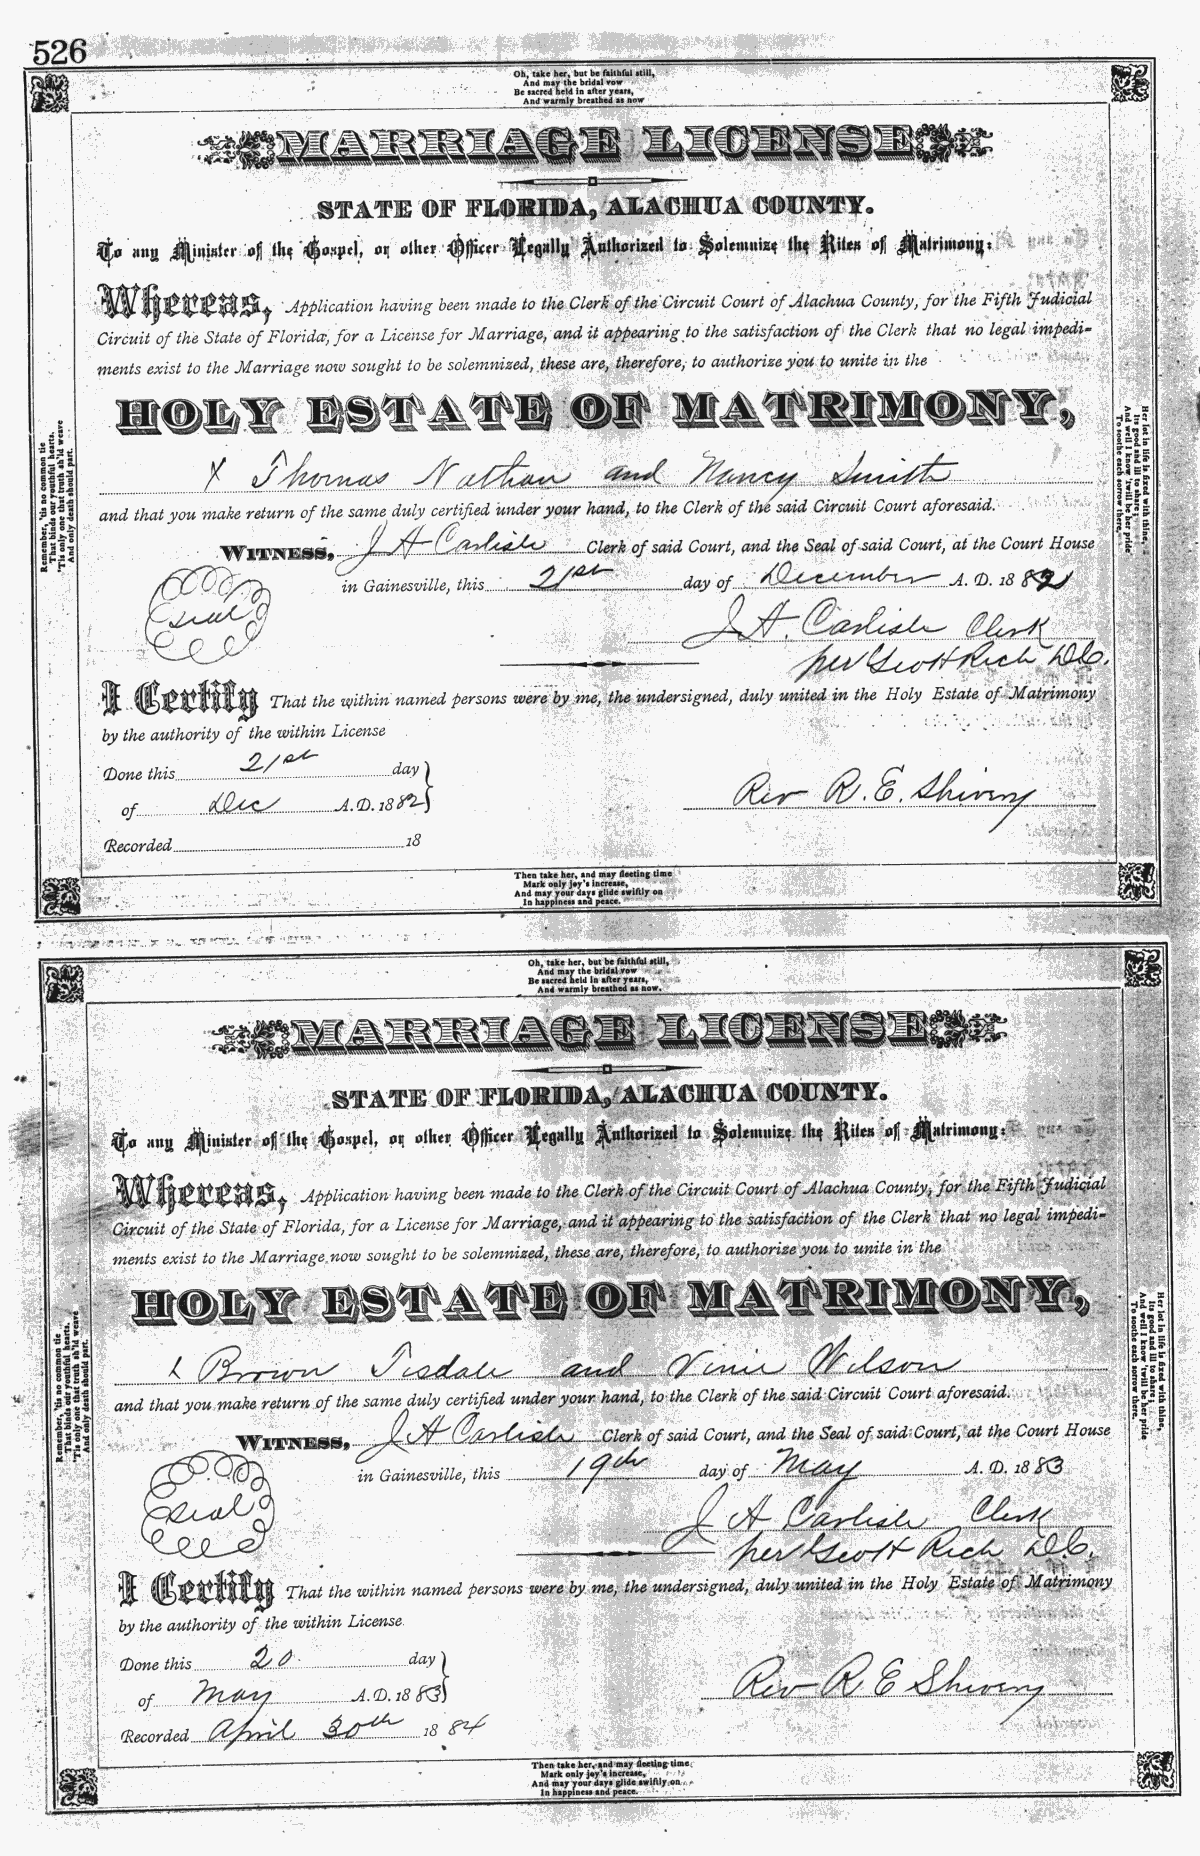 526
Oh, take her, but be faithful still,
And may the bridal vow
Be sacred held in after years,
And warmly breathed as now
MARRIAGE LICENSE
STATE OF FLORIDA, ALACHUA COUNTY.
To any Minister of the Gospel, or other Officer Legally Authorized to Solemnize the Rites of Matrimony:
Whereas, Application having been made to the Clerk of the Circuit Court of Alachua County, for the Fifth Judicial
Circuit of the State of Florida, for a License for Marriage, and it appearing to the satisfaction of the Clerk that no legal impedi-
ments exist to the Marriage now sought to be solemnized, these are, therefore, to authorize you to unite in the
HOLY ESTATE OF MATRIMONY,
x Thomas Nathan and Nancy Smith
and that you make return of the same duly certified under your hand, to the Clerk of the said Circuit Court aforesaid.
WITNESS, J A Carlisle Clerk of said Court, and the Seal of said Court, at the Court House
in Gainesville, this 21st day of December A. D. 1882
Seal
J. A. Carlisle Clerk
per Scott Rich D.C.
I Certify That the within named persons were by me, the undersigned, duly united in the Holy Estate of Matrimony
by the authority of the within License
Done this 21st day
of Dec A. D. 1882
Rev R. E. Shivery
Recorded 18
Then take her, and may fleeting time
Mark only joy's increase,
And may your days glide swiftly on
In happiness and peace.
Remember, 'tis no common tie
That binds our youthful hearts,
'Tis only one that truth sh'ld weave
And only death should part.
Her lot in life is fixed with thine,
Its good and ill to share;
And well I know 'twill be her pride
To soothe each sorrow there.
Oh, take her, but be faithful still,
And may the bridal vow
Be sacred held in after years,
And warmly breathed as now.
MARRIAGE LICENSE
STATE OF FLORIDA, ALACHUA COUNTY.
To any Minister of the Gospel, or other Officer Legally Authorized to Solemnize the Rites of Matrimony:
Whereas, Application having been made to the Clerk of the Circuit Court of Alachua County, for the Fifth Judicial
Circuit of the State of Florida, for a License for Marriage, and it appearing to the satisfaction of the Clerk that no legal impedi-
ments exist to the Marriage now sought to be solemnized, these are, therefore, to authorize you to unite in the
HOLY ESTATE OF MATRIMONY,
x Brown Tisdale and Vinie Wilson
and that you make return of the same duly certified under your hand, to the Clerk of the said Circuit Court aforesaid.
WITNESS, J A Carlisle Clerk of said Court, and the Seal of said Court, at the Court House
in Gainesville, this 19th day of May A. D. 1883
Seal
J A Carlisle Clerk
per Scott Rich D.C.
I Certify That the within named persons were by me, the undersigned, duly united in the Holy Estate of Matrimony
by the authority of the within License
Done this 20 day
of May A. D. 1883
Rev R E Shivery
Recorded April 30th 1884
Then take her, and may fleeting time
Mark only joy's increase,
And may your days glide swiftly on
In happiness and peace.
Remember, 'tis no common tie
That binds our youthful hearts,
'Tis only one that truth sh'ld weave
And only death should part.
Her lot in life is fixed with thine,
Its good and ill to share;
And well I know 'twill be her pride
To soothe each sorrow there.